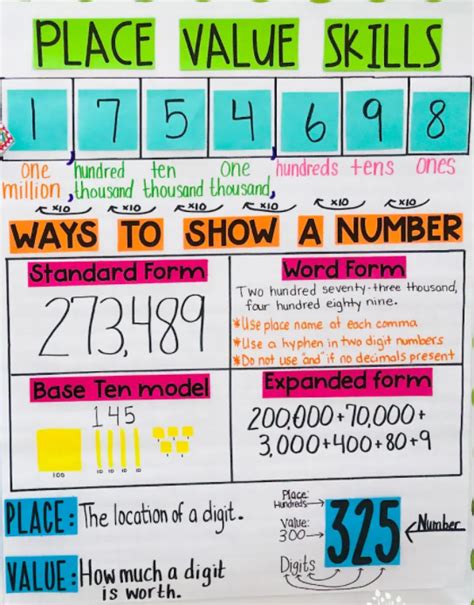 PLACE VALUE SKILLS
1 7 5 4 6 9 8
one hundred ten One hundreds tens ones
million, thousand thousand thousand,
x10 x10 x10 x10 x10 x10
WAYS TO SHOW A NUMBER
Standard Form
273,489
Word Form
Two hundred seventy-three thousand,
four hundred eighty nine.
*Use place name at each comma
*Use a hyphen in two digit numbers
*Do not use "and" if no decimals present
Base Ten model
145
100 10 10 10 10
Expanded form
200,000+70,000+
3,000+400+80+9
PLACE: The location of a digit.
VALUE: How much a digit
is worth.
Place:
Hundreds
Value:
300
325
Number
Digits